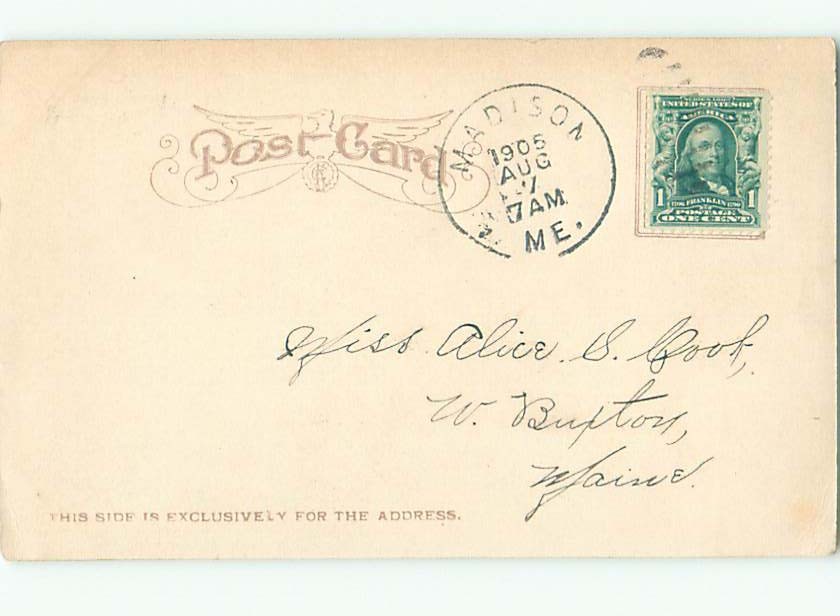 Post Card
MADISON
1905
AUG
7AM
ME.
SERIES 1902
UNITED STATES OF
AMERICA
1 1
1706 FRANKLIN 1790
POSTAGE
ONE CENT
Miss Alice. S. Cook,
W. Buxton,
Maine.
THIS SIDE IS EXCLUSIVELY FOR THE ADDRESS.